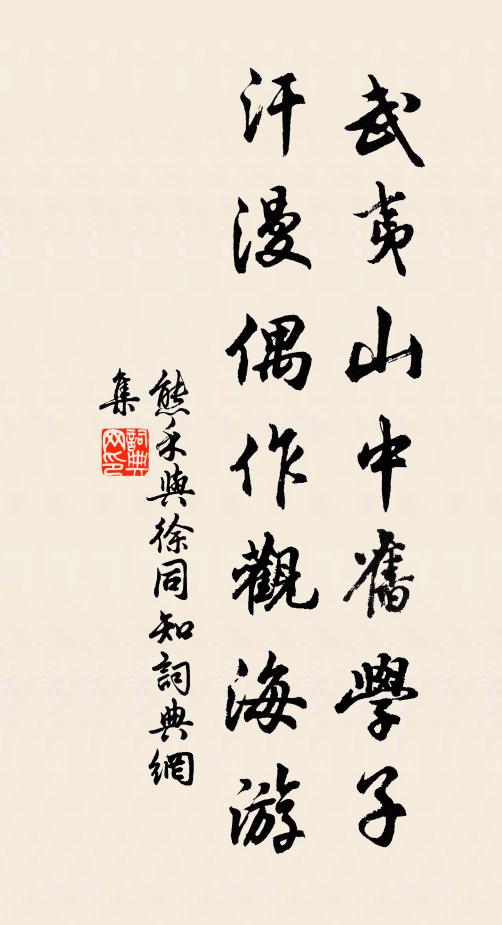 武夷山中舊學子
汗漫偶作觀海游
熊禾與徐同知詞典網
集
詞典
网印